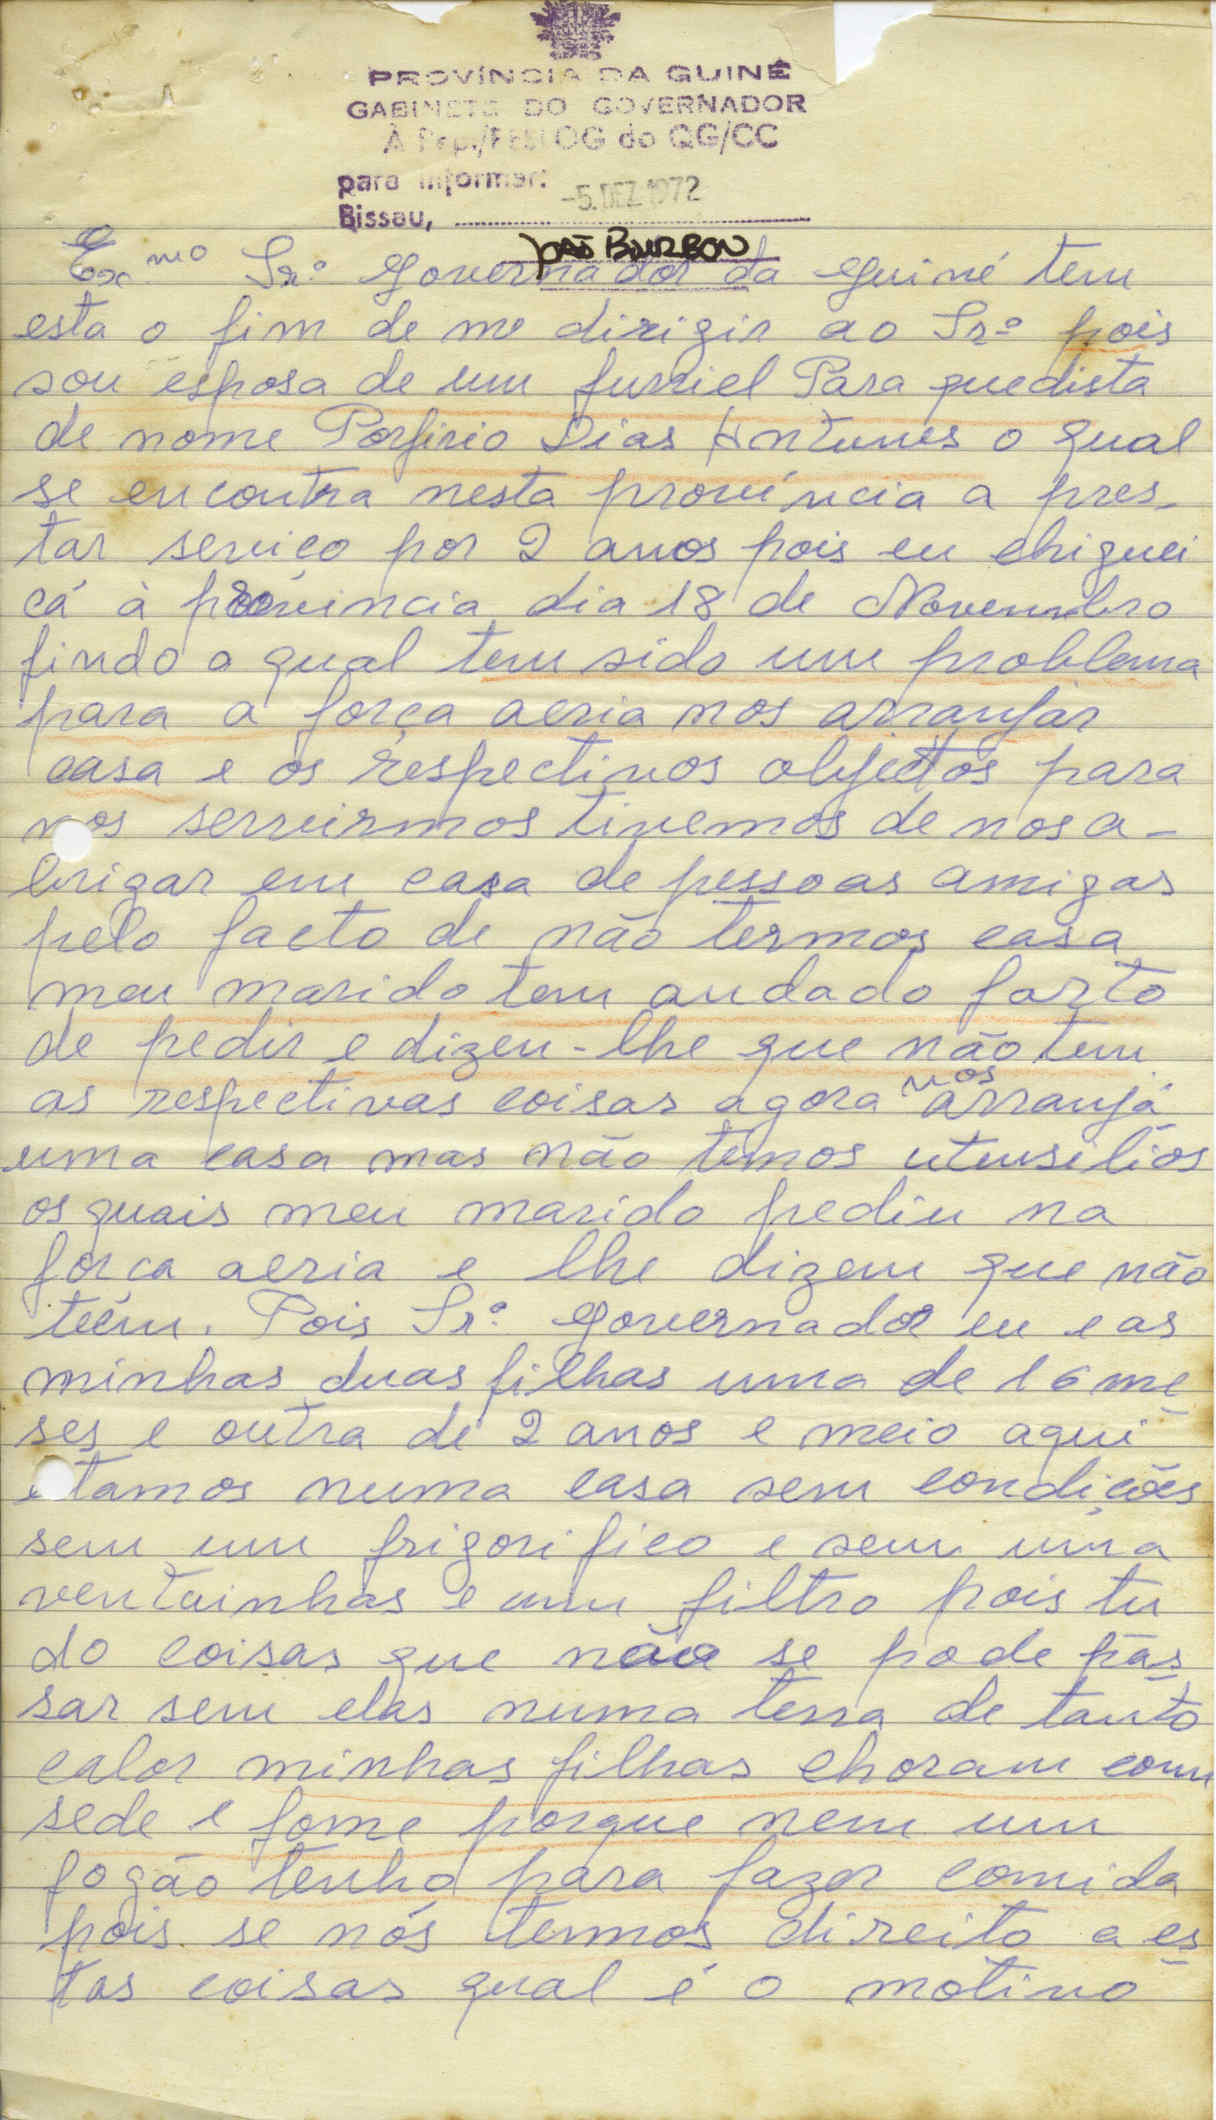 PROVÍNCIA DA GUINÉ
GABINETE DO GOVERNADOR
À Rep./ OG do QG/CC
para informar:
-5. DEZ. 1972
Bissau,
JOÃO BURBON
Exmo Sr.º Governador da Guiné tem
esta o fim de me dirigir ao Sr.º pois
sou esposa de um furriel Para quedista
de nome Porfirio Dias Antunes o qual
se encontra nesta província a pres-
tar serviço por 2 anos pois eu chiguei
cá à província dia 18 de Novembro
findo o qual tem sido um problema
para a força aeria nos arranjar
casa e os respectivos objectos para
nos servirmos tivemos de nos a-
brigar em casa de pessoas amigas
pelo facto de não termos casa
meu marido tem andado farto
de pedir e dizen-lhe que não tem
as respectivas coisas agora nos arranjá
uma casa mas não temos utensilios
os quais meu marido pediu na
força aeria e lhe dizem que não
teém. Pois Sr.º Governador eu e as
minhas duas filhas uma de 16 me
ses e outra de 2 anos e meio aqui
etamos numa casa sem condições
sem um frigorifico e sem uma
ventuinhas e um filtro pois tu
do coisas que não se pode pas
sar sem elas numa terra de tanto
calor minhas filhas choram com
sede e fome porque nem um
fogão tenho para fazer comida
pois se nós temos direito a es
tas coisas qual é o motivo